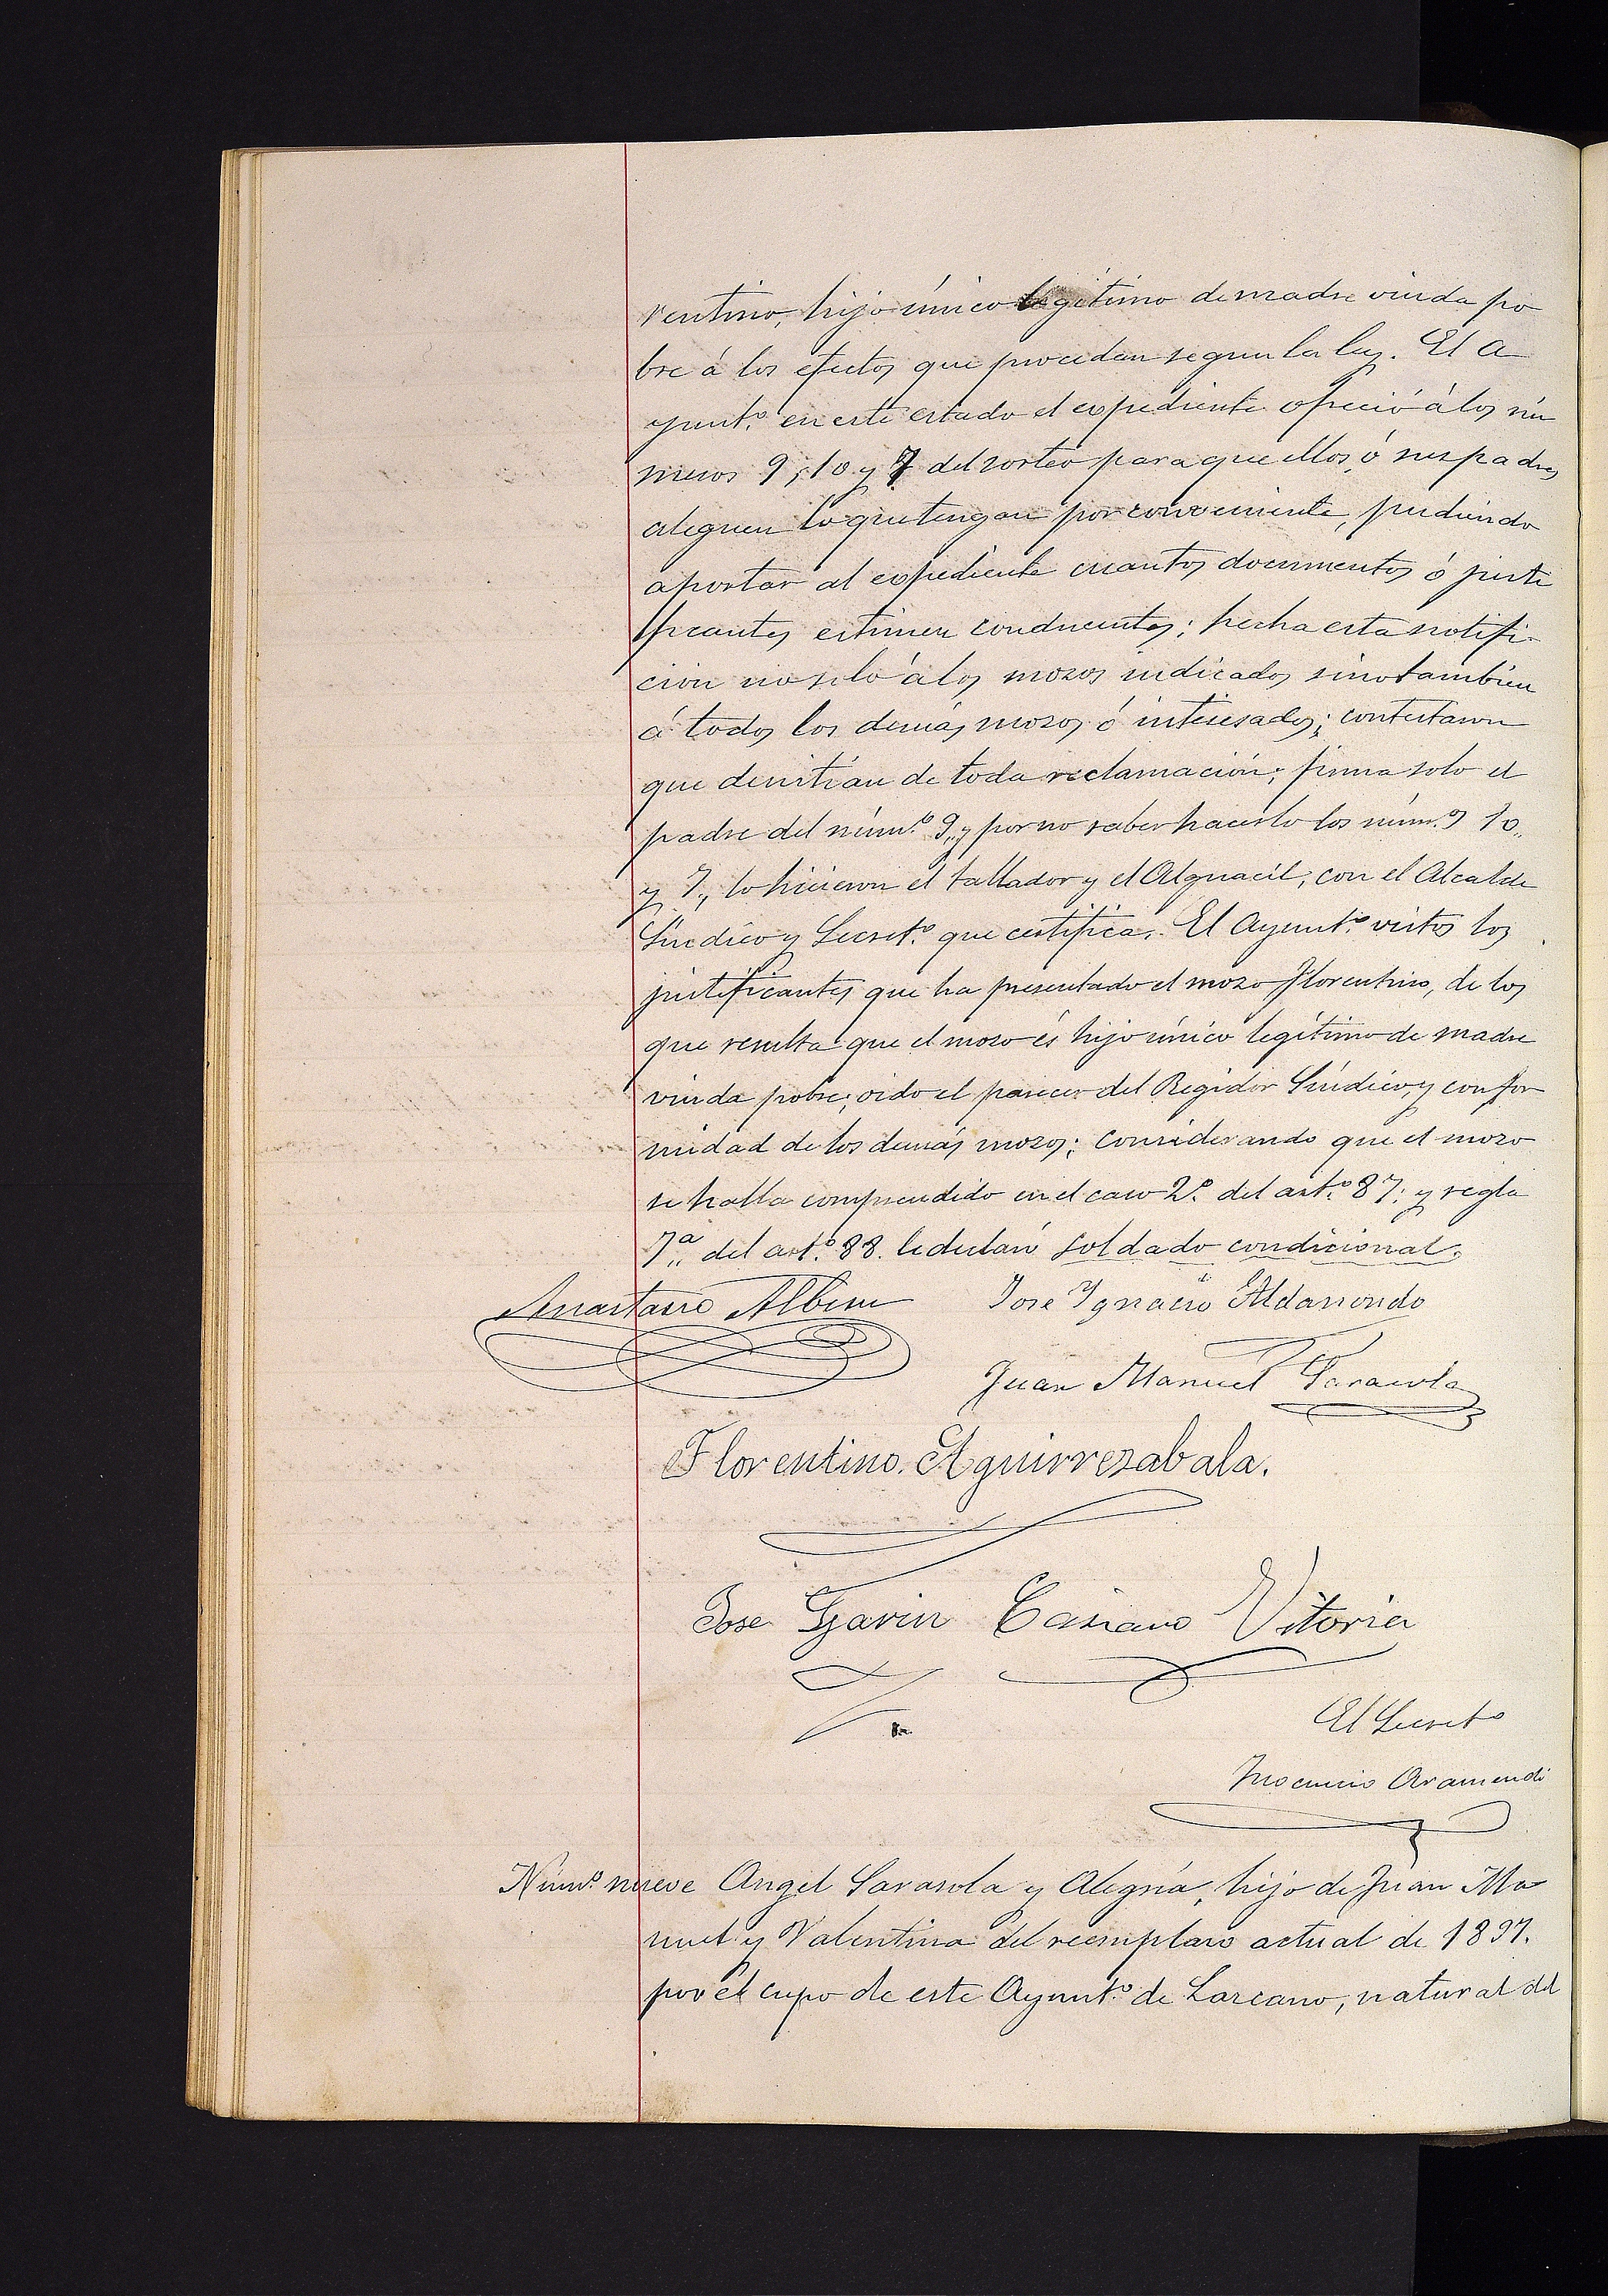 rentino, hijo único legítimo de madre viuda po
bre á los efectos que procedan segun la ley. El A
yunt.º en este estado el expediente ofreció á los nú
meros 9, 10 y 7 del sorteo para que ellos, ó sus padres
aleguen lo que tengan por conveniente, pudiendo
aportar al expediente cuantos documentos ó justi
ficantes estimen conducentes; hecha esta notifi-
cion no solo á los mozos indicados sino tambien
á todos los demás mozos ó interesados; contestaron
que desistian de toda reclamación; firma solo el
padre del núm.º 9,, y por no saber hacerlo los núm.s 10,,
y 7,, lo hicieron el tallador y el Alguacil, con el Alcalde
Síndico y Secret.º que certifica. El Ayunt.º vistos los
justificantes que ha presentado el mozo Florentino, de los
que resulta que el mozo és hijo único legítimo de madre
viuda pobre; oido el parecer del Regidor Síndico, y confor
midad de los demás mozos; considerando que el mozo
se halla comprendido en el caso 2.º del art.º 87; y regla
7.ª del art.º 88. le declaró soldado condicional.
Anastasio Albisu Jose Ygnacio Aldasoro
Juan Manuel Sarasola
Florentino. Aguirrezabala.
Jose Garin Casiano Vitoria
El Secret.º
Ynocencio Aramendi
Núm.º nueve Angel Sarasola y Alegría, hijo de Juan Ma
nuel y Valentina del reemplazo actual de 1897.
por el cupo de este Ayunt.º de Lazcano, natural del